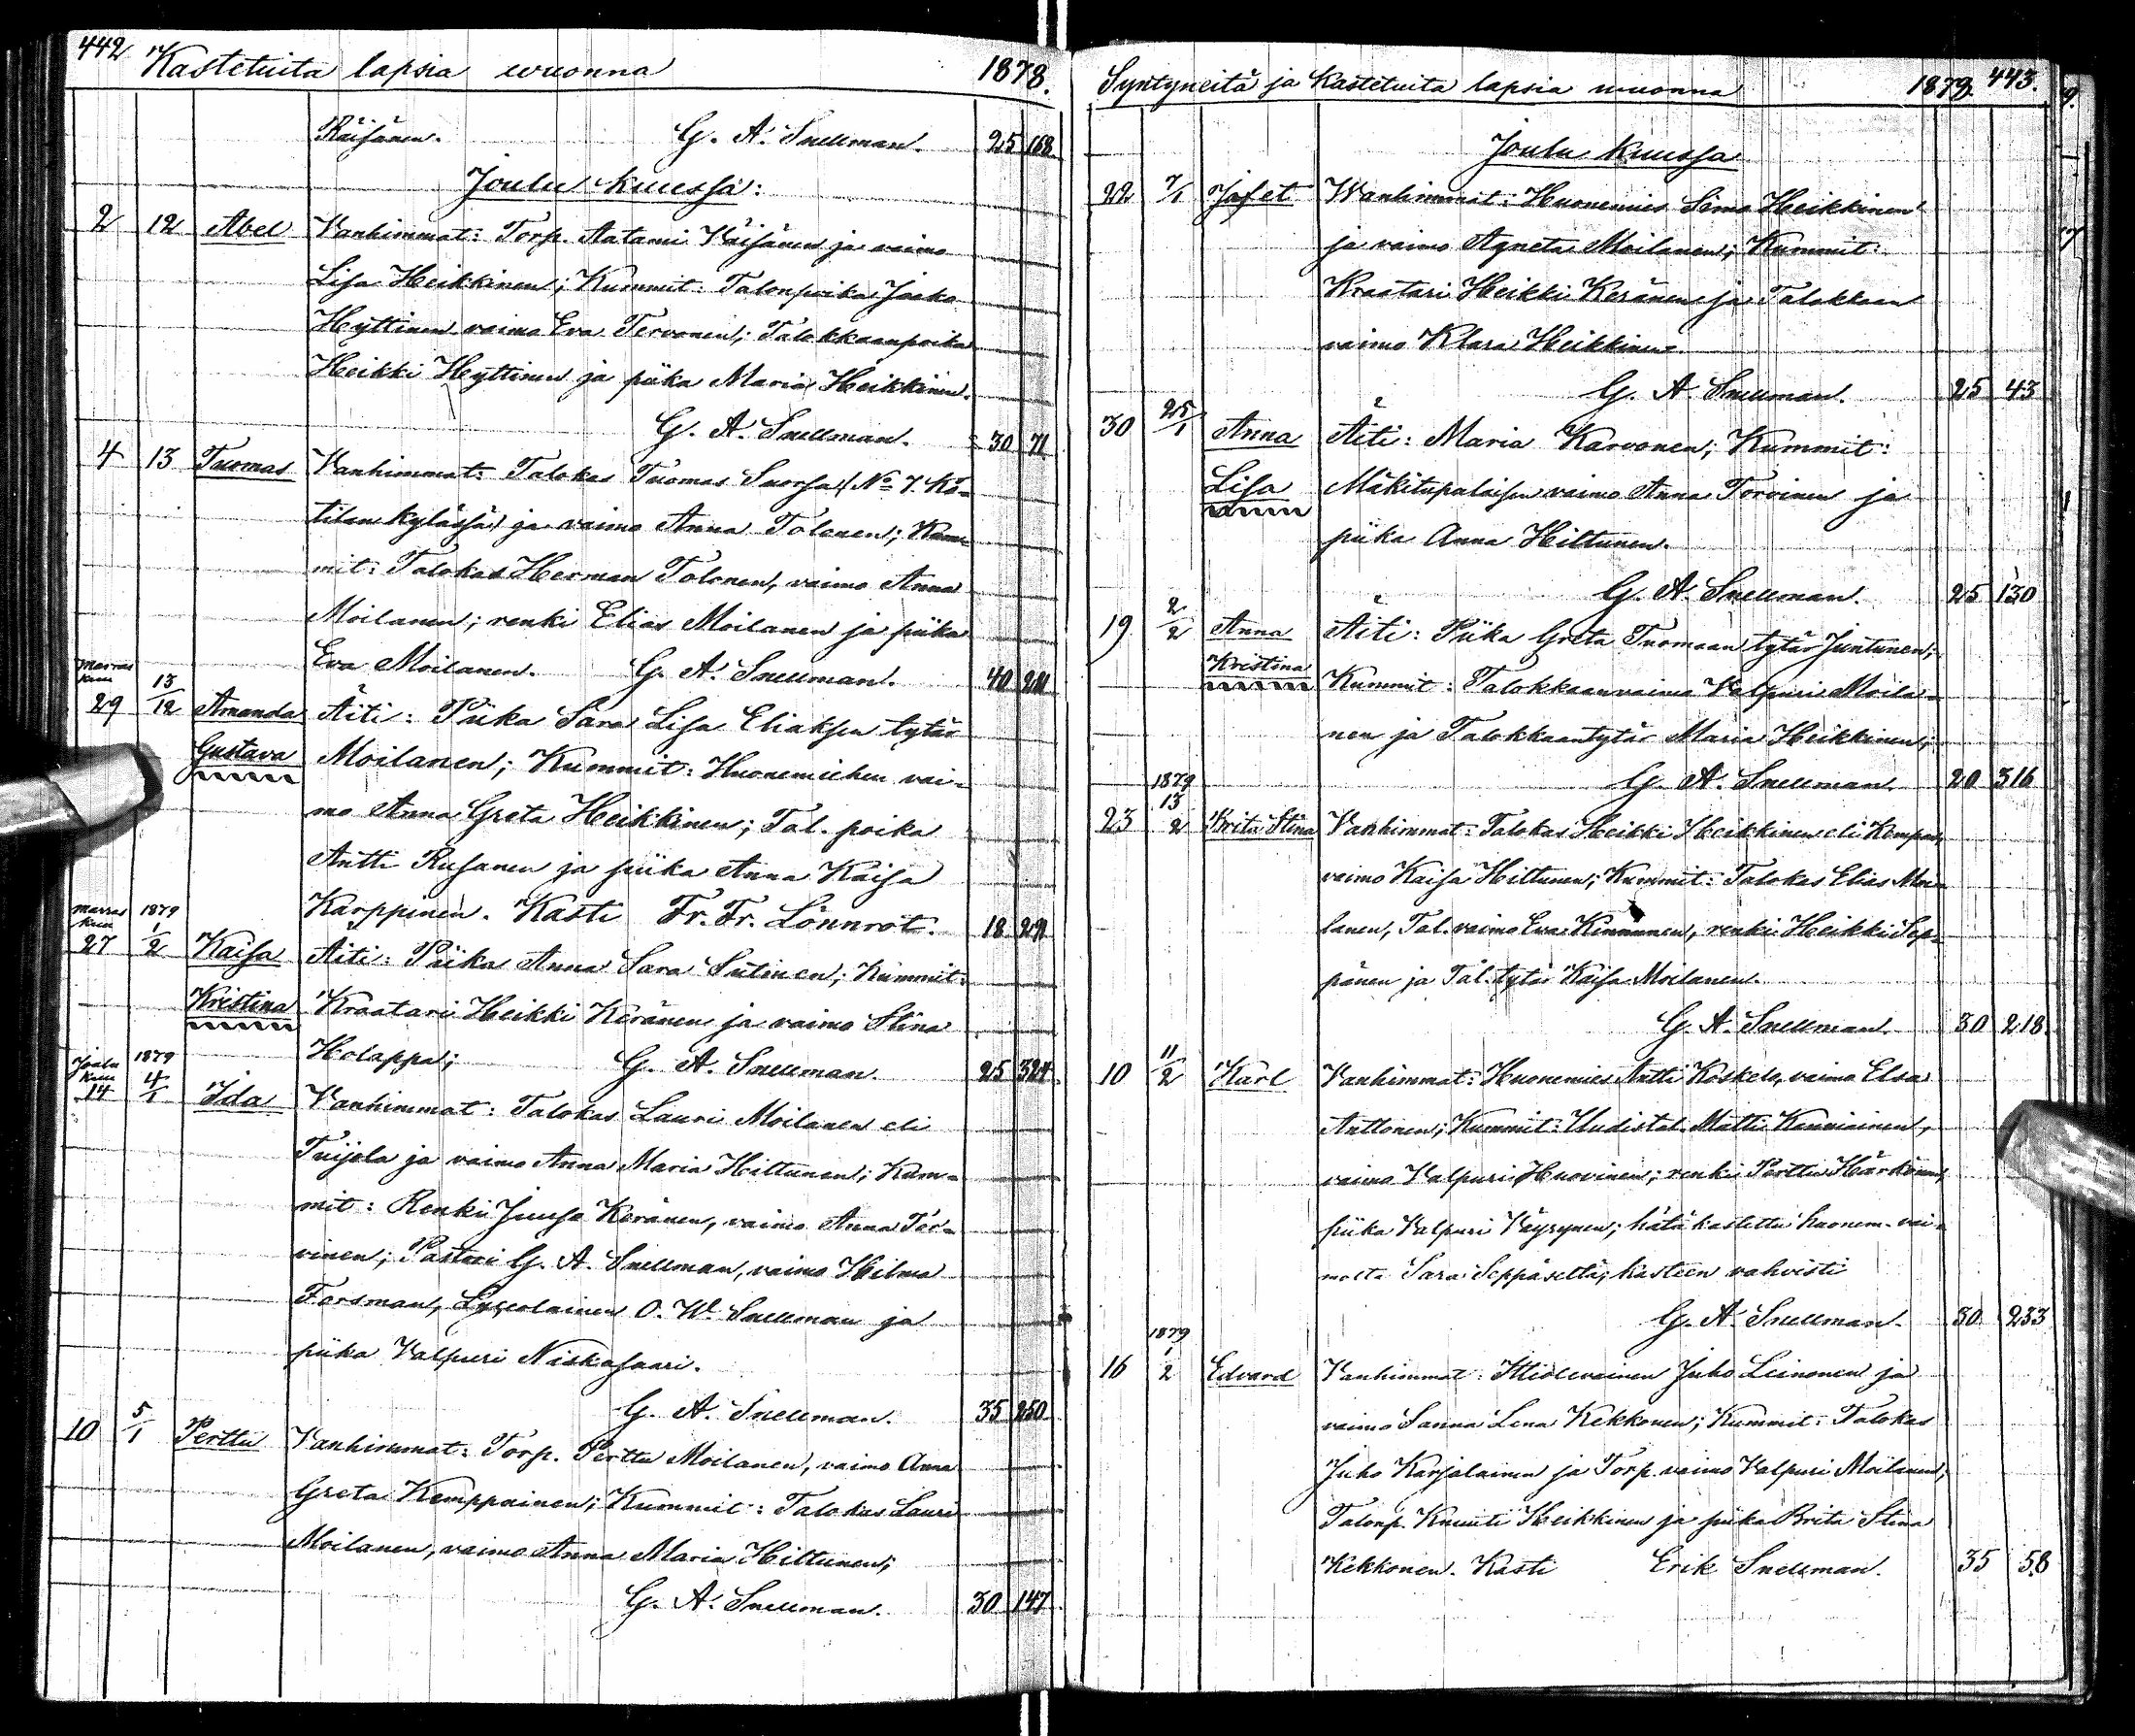 442 Kastetuita lapsia wuonna 1878.
Räisänen. G. A. Snellman. 25 168
Joulu kuussa:
2 12 Abel Vanhimmat: Torp. Aatami Väisänen ja vaimo
Lisa Heikkinen; Kummit: Talonpoika Jaako
Hyttinen vaimo Eva Tervonen; Talokkaanpoika
Heikki Hyttinen ja piika Maria Heikkinen.
G. A. Snellman. 30 71
4 13 Tuomas Vanhimmat: Talokas Tuomas Suorsa (No 7. Ko-
tilan kylässä) ja vaimo Anna Tolonen; Kum-
mit: Talokas Herman Tolonen, vaimo Anna
Moilanen; renki Elias Moilanen ja piika
Eva Moilanen. G. A. Snellman. 40 211
Marras
kuu
29 13/12 Amanda Äiti: Piika Sara Lisa Eliaksen tytär
Gustava Moilanen; Kummit: Huonemiehen vai-
mo Anna Greta Heikkinen; Tal. poika
Antti Rusanen ja piika Anna Kaisa
Karppinen. Kasti Fr. Fr. Lönnrot. 18 29
Marras 1879
kuu
27 1/2 Kaisa Äiti: Piika Anna Sara Sutinen; Kummit:
Kristina Kraatari Heikki Keränen ja vaimo Stina
Holappa; G. A. Snellman. 25 324
Joulu 1879
kuu
14 4/1 Ida Vanhimmat: Talokas Lauri Moilanen eli
Tuijola ja vaimo Anna Maria Hiltunen; Kum-
mit: Renki Juuso Keränen, vaimo Anna Tor-
vinen; Pastori G. A. Snellman, vaimo Hilma
Forsman, Lyseolainen O. W. Snellman ja
piika Valpuri Niskasaari.
G. A. Snellman. 35 250
10 5/1 Perttu Vanhimmat: Torp. Perttu Moilanen, vaimo Anna
Greta Kemppainen; Kummit: Talokas Lauri
Moilanen, vaimo Anna Maria Hiltunen;
G. A. Snellman. 30 147
Syntyneitä ja Kastetuita lapsia wuonna 1879. 443.
Joulu kuussa
22 7/1 Jafet Wanhimmat: Huonemies Simo Heikkinen
ja vaimo Agneta Moilanen; Kummit:
Kraatari Heikki Keränen ja Talokkaan
vaimo Klara Heikkinen.
G. A. Snellman. 25 43
30 25/1 Anna Äiti: Maria Karvonen; Kummit:
Lisa Mäkitupalaisen vaimo Anna Torvinen ja
piika Anna Hiltunen.
G. A. Snellman. 25 130
19 2/2 Anna Äiti: Piika Greta Tuomaan tytär Juntunen;
Kristina Kummit: Talokkaanvaimo Valpuri Moila-
nen ja Talokkaantytär Maria Heikkinen;
G. A. Snellman. 20 316
1879
23 13/2 Brita Stina Vanhimmat: Talokas Heikki Heikkinen eli Kempas,
vaimo Kaisa Hiltunen; Kummit: Talokas Elias Moi-
lanen, Tal. vaimo Eva Kinnunen, renki Heikki Sep-
pänen ja Tal. tytär Kaisa Moilanen.
G. A. Snellman. 30 218.
10 11/2 Karl Vanhimmat: Huonemies Antti Koskelo, vaimo Elsa
Anttonen; Kummit: Uudistal. Matti Kauniainen,
vaimo Valpuri Huovinen; renki Perttu Härkönen,
piika Valpuri Väyrynen; hätäkastettu huonem. vai-
molta Sara Seppäseltä; kasteen vahvisti
G. A. Snellman. 30 233
1879
16 1/2 Edvard Vanhimmat: Itselevainen Juho Leinonen ja
vaimo Sanna Lena Kekkonen; Kummit: Talokas
Juho Karjalainen ja Torp. vaimo Valpuri Moilanen;
Talonp. Knuuti Heikkinen ja piika Brita Stina
Kekkonen. Kasti Erik Snellman. 35 58